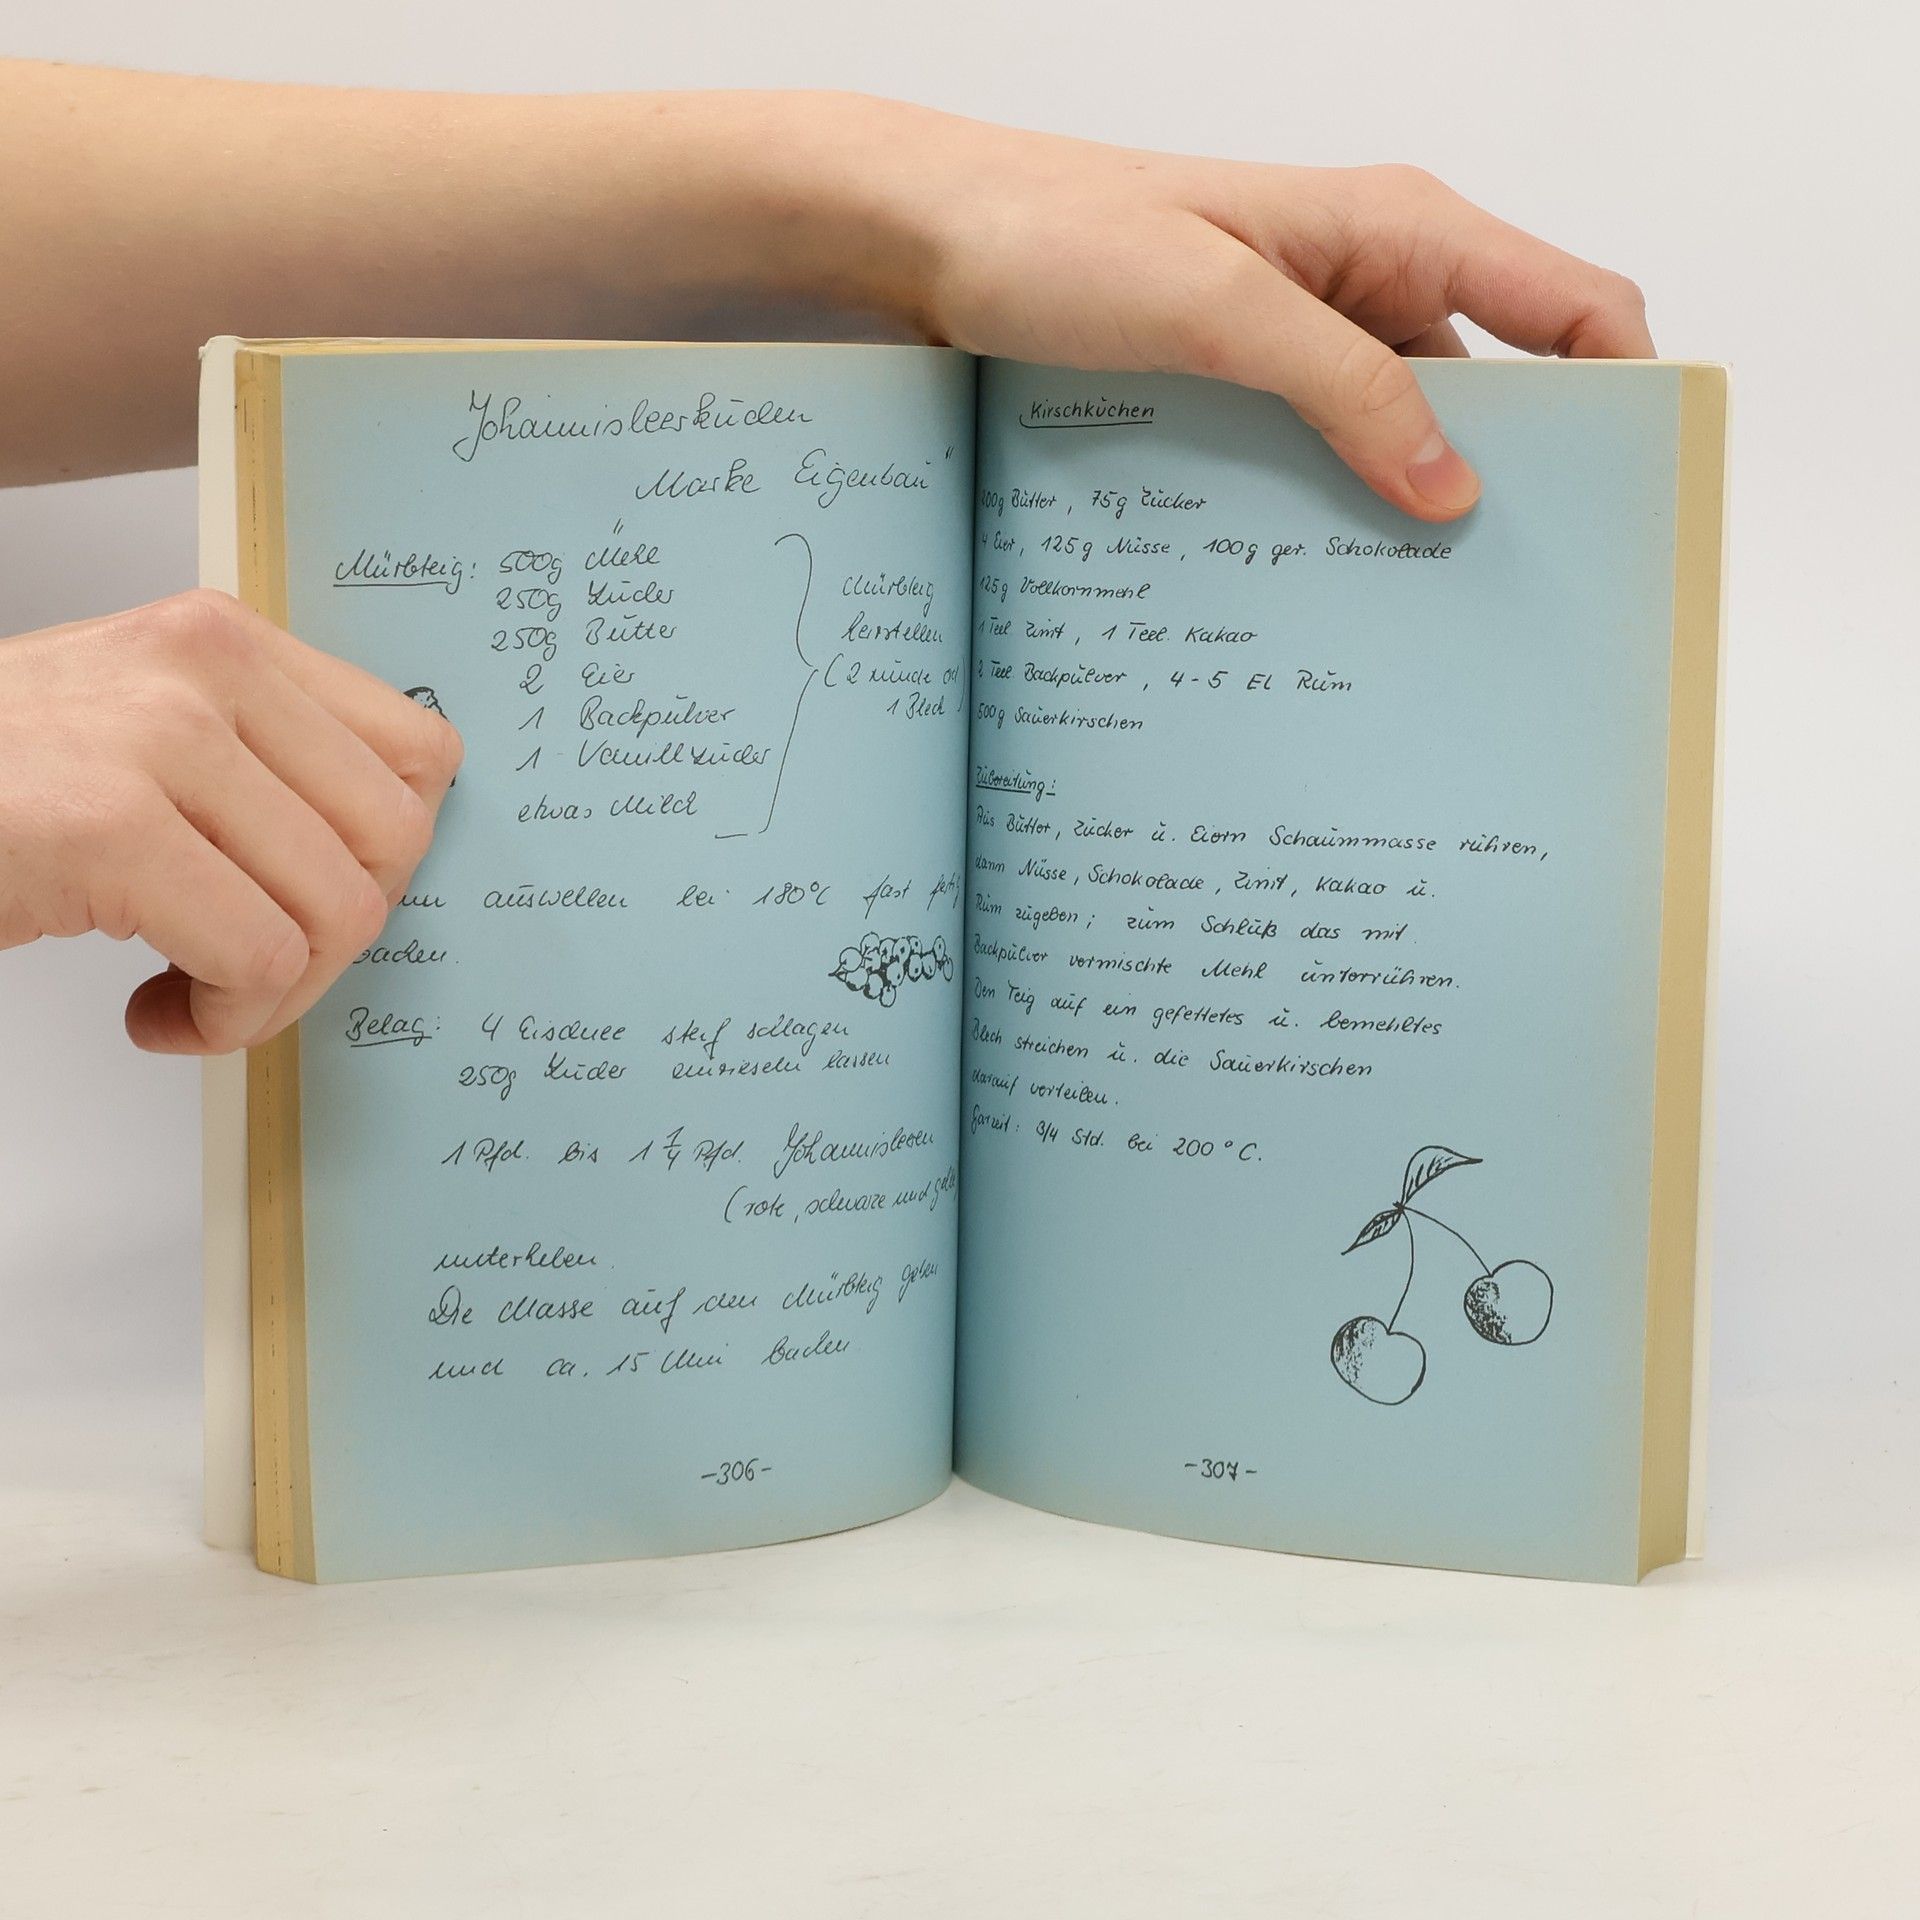 Johannisbeerkuchen
"Marke Eigenbau"
Mürbteig: 500g Mehl
250g Zucker
250g Butter
2 Eier
1 Backpulver
1 Vanillzucker
etwas Milch
Mürbteig
herstellen
(2 runde od
1 Blech)
auswellen bei 180°C fast fertig
backen.
Belag: 4 Eischnee steif schlagen
250g Zucker einrieseln lassen
1 Pfd. bis 1 1/4 Pfd. Johannisbeeren
(rote, schwarze und gelbe)
unterheben.
Die Masse auf den Mürbteig geben
und ca. 15 Min backen
-306-
Kirschkuchen
200g Butter, 75g Zucker
4 Eier, 125g Nüsse, 100g ger. Schokolade
125g Vollkornmehl
1 Teel. Zimt, 1 Teel. Kakao
2 Teel. Backpulver, 4-5 El Rum
500g Sauerkirschen
Zubereitung:
Aus Butter, Zucker u. Eiern Schaummasse rühren,
dann Nüsse, Schokolade, Zimt, Kakao u.
Rum zugeben; zum Schluß das mit
Backpulver vermischte Mehl unterrühren.
Den Teig auf ein gefettetes u. bemehltes
Blech streichen u. die Sauerkirschen
darauf verteilen.
Garzeit: 3/4 Std. bei 200°C.
-307-